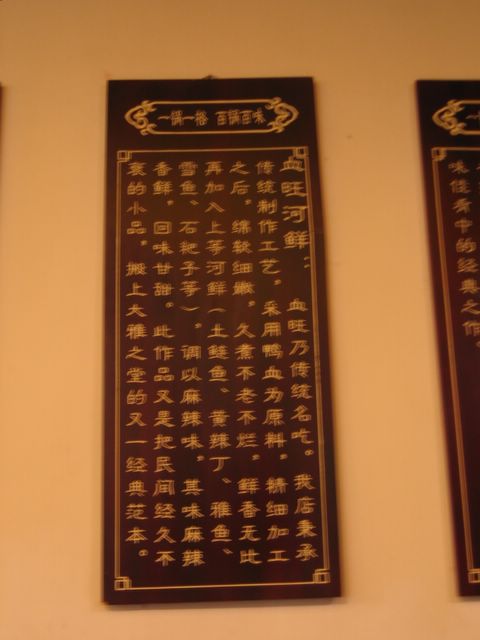 一锅一格 百锅百味
血旺河鲜：血旺乃传统名吃。我店秉承
传统制作工艺。采用鸭血为原料，精细加工
之后，绵软细嫩。久煮不老不烂。鲜香无比
再加入上等河鲜（土鲢鱼、黄辣丁、雅鱼、
雪鱼、石粑子等），调以麻辣味。其味麻辣
香鲜。回味甘甜。此作品又是把民间经久不
衰的小品，搬上大雅之堂的又一经典范本。
味佳肴中的经典之作。